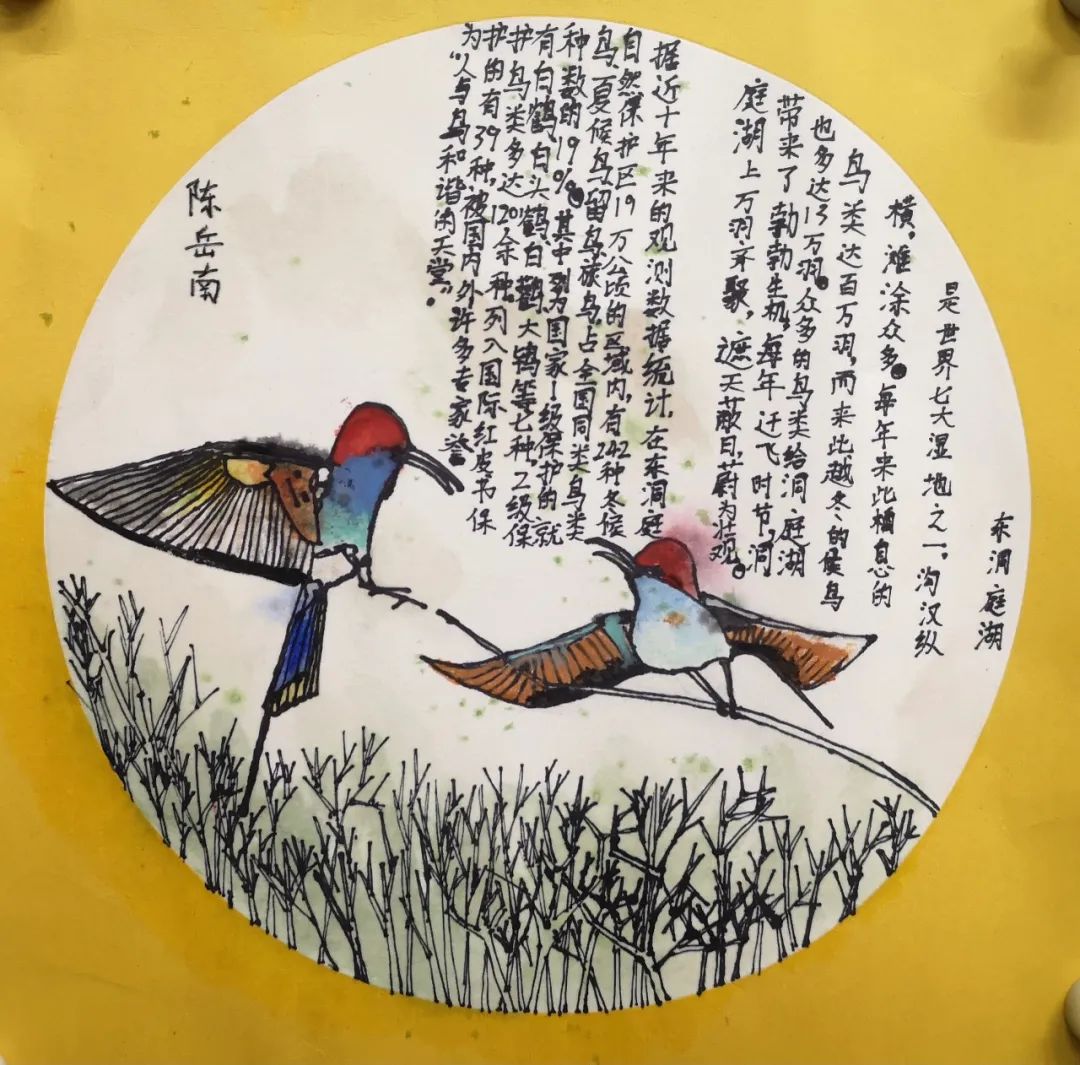 东洞庭湖
是世界七大湿地之一，沟汊纵
横，滩涂众多。每年来此栖息的
鸟类达百万羽，而来此越冬的候鸟
也多达13万羽。众多的鸟类给洞庭湖
带来了勃勃生机，每年迁飞时节，洞
庭湖上万羽齐聚，遮天蔽日，蔚为壮观。
据近十年来的观测数据统计，在东洞庭
自然保护区19万公顷的区域内，有242种冬候
鸟、夏候鸟、留鸟、旅鸟，占全国同类鸟类
种数的19%。其中列为国家一级保护的就
有白鹤、白头鹤、白鹳、大鸨等七种，二级保
护鸟类多达120余种。列入国际红皮书保
护的有39种，被国内外许多专家誉
为“人与鸟和谐的天堂”。
陈岳南